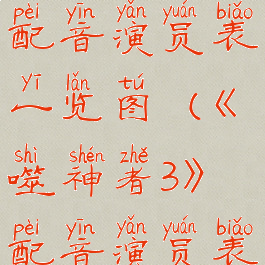 pèi yīn yǎn yuán biǎo
配音演员表
yī lǎn tú
一览图（《
shì shén zhě
噬神者3》
pèi yīn yǎn yuán biǎo
配音演员表